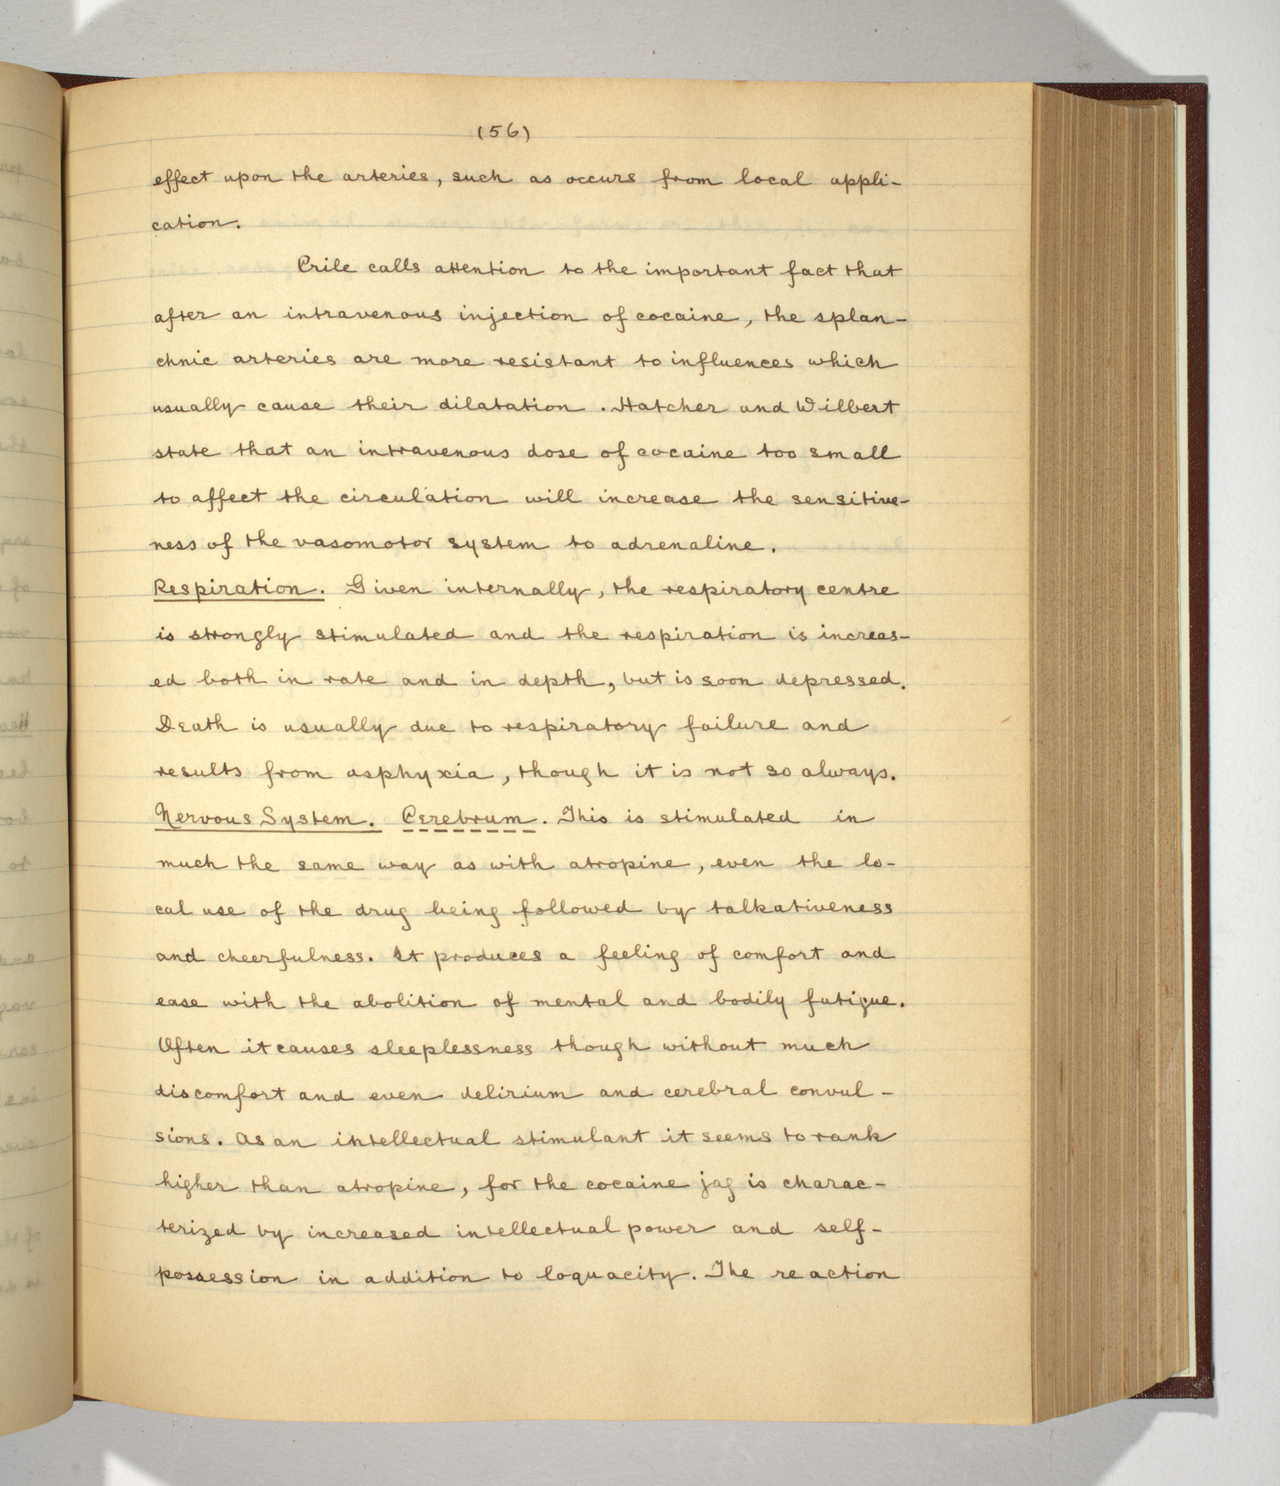 (56)
effect upon the arteries, such as occurs from local appli-
cation.
Crile calls attention to the important fact that
after an intravenous injection of cocaine, the splan-
chnic arteries are more resistant to influences which
usually cause their dilatation. Hatcher and Wilbert
state that an intravenous dose of cocaine too small
to affect the circulation will increase the sensitive-
ness of the vasomotor system to adrenaline.
Respiration. Given internally, the respiratory centre
is strongly stimulated and the respiration is increas-
ed both in rate and in depth, but is soon depressed.
Death is usually due to respiratory failure and
results from asphyxia, though it is not so always.
Nervous System. Cerebrum. This is stimulated in
much the same way as with atropine, even the lo-
cal use of the drug being followed by talkativeness
and cheerfulness. It produces a feeling of comfort and
ease with the abolition of mental and bodily fatigue.
Often it causes sleeplessness though without much
discomfort and even delirium and cerebral convul-
sions. As an intellectual stimulant it seems to rank
higher than atropine, for the cocaine jag is charac-
terized by increased intellectual power and self-
possession in addition to loquacity. The reaction